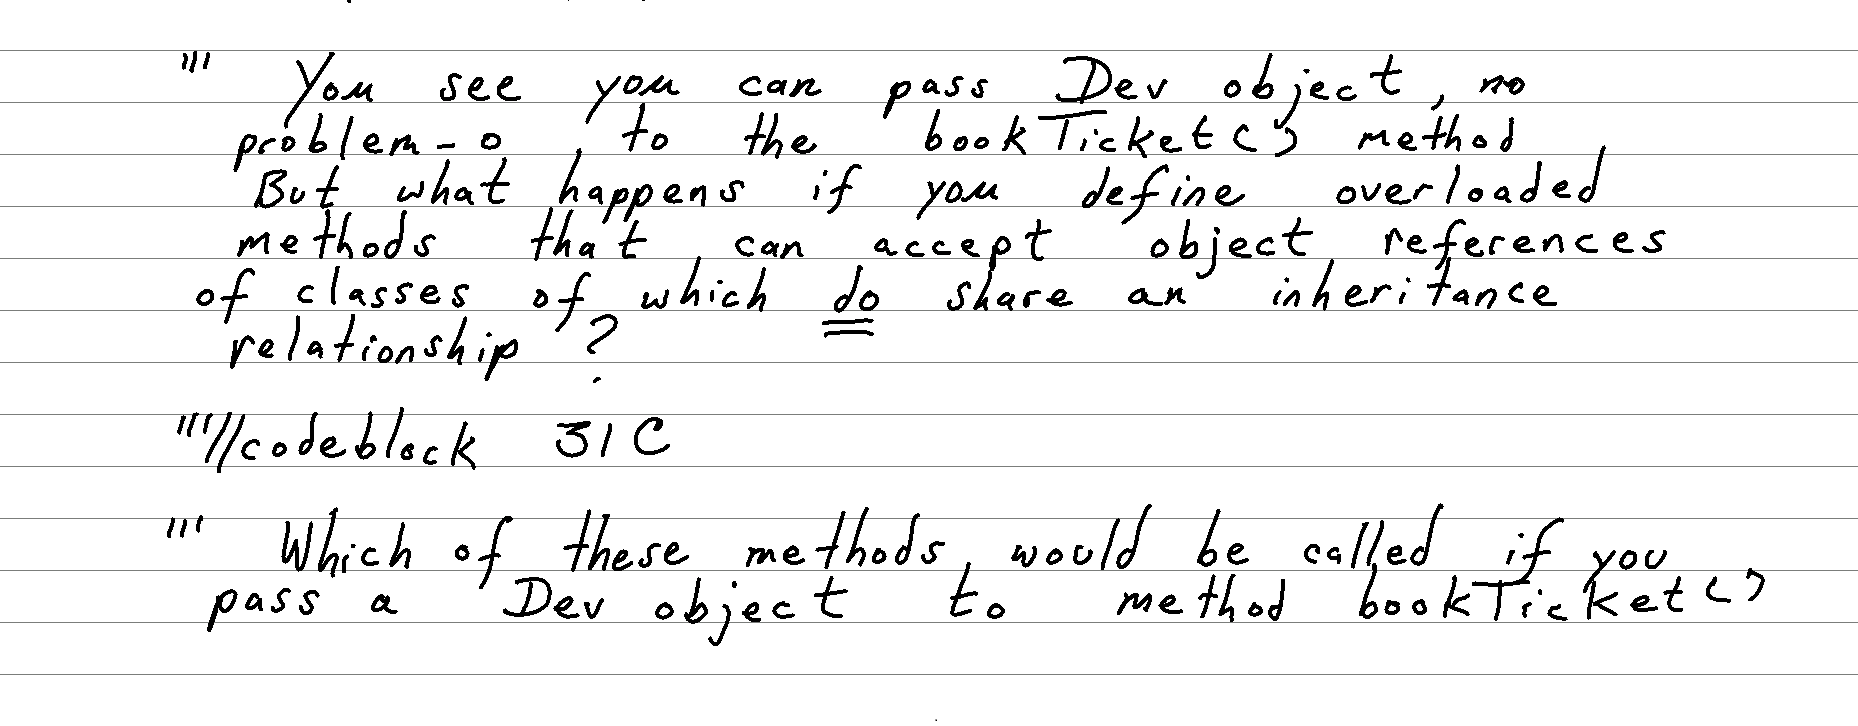 ''' You see you can pass Dev object, no
problem-o, to the bookTicket() method
But what happens if you define overloaded
methods that can accept object references
of classes of which do share an inheritance
relationship ?
''''//codeblock 31C
''' Which of these methods would be called if you
pass a Dev object to method bookTicket()